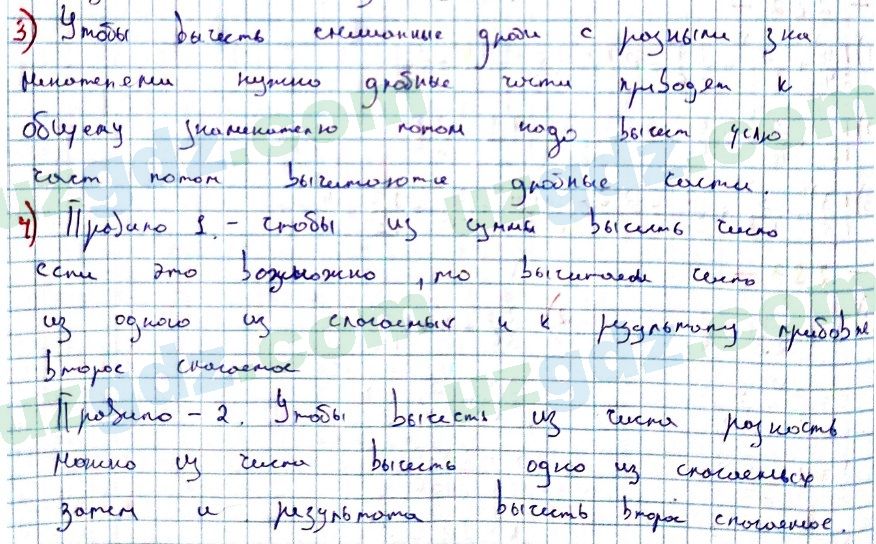 3) Чтобы вычесть смешанные дроби с разными зна
менателеми нужно дробные части приводят к
общему знаменателю потом надо вычест целую
част потом вычитаются дробные части.
4) Правило 1. - чтобы из суммы вычесть число
если это возможно, то вычитаем число
из одного из слогаемых и к результату прибовля
второе слогаемое
Правило - 2. Чтобы вычесть из числа разность
можно из числа вычесть одно из слогаемых
затем и результата вычесть второе слогаемое.
uzgdz.com